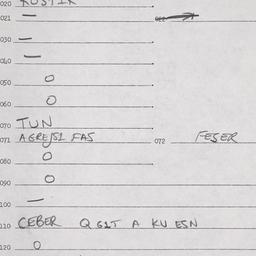 020 RUSTIK
021 —
030 —
040 —
050 O
060 O
070 TUN
071 AGREJSI FAS 072 FESER
080 O
090 O
100 —
110 CEBER Q GIT A KU ESN
120 O